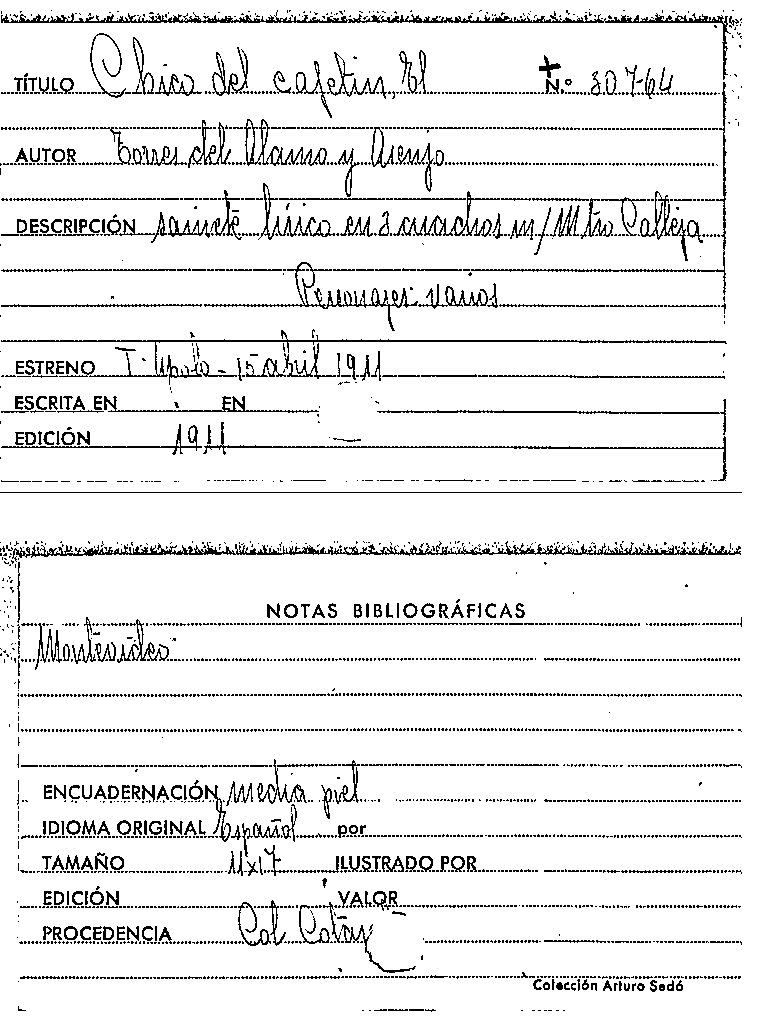 TÍTULO Chico del cafetin, El Nº 307-64
AUTOR Torres del Alamo y Asenjo
DESCRIPCIÓN sainete lírico en 3 cuadros m/ Mtro Calleja
Personajes: varios
ESTRENO T. Apolo - 15 abril 1911
ESCRITA EN EN
EDICIÓN 1911
NOTAS BIBLIOGRÁFICAS
Montevideo
ENCUADERNACIÓN media piel
IDIOMA ORIGINAL Español por
TAMAÑO 11x17 ILUSTRADO POR
EDICIÓN VALOR
PROCEDENCIA Col
Colección Arturo Sedó